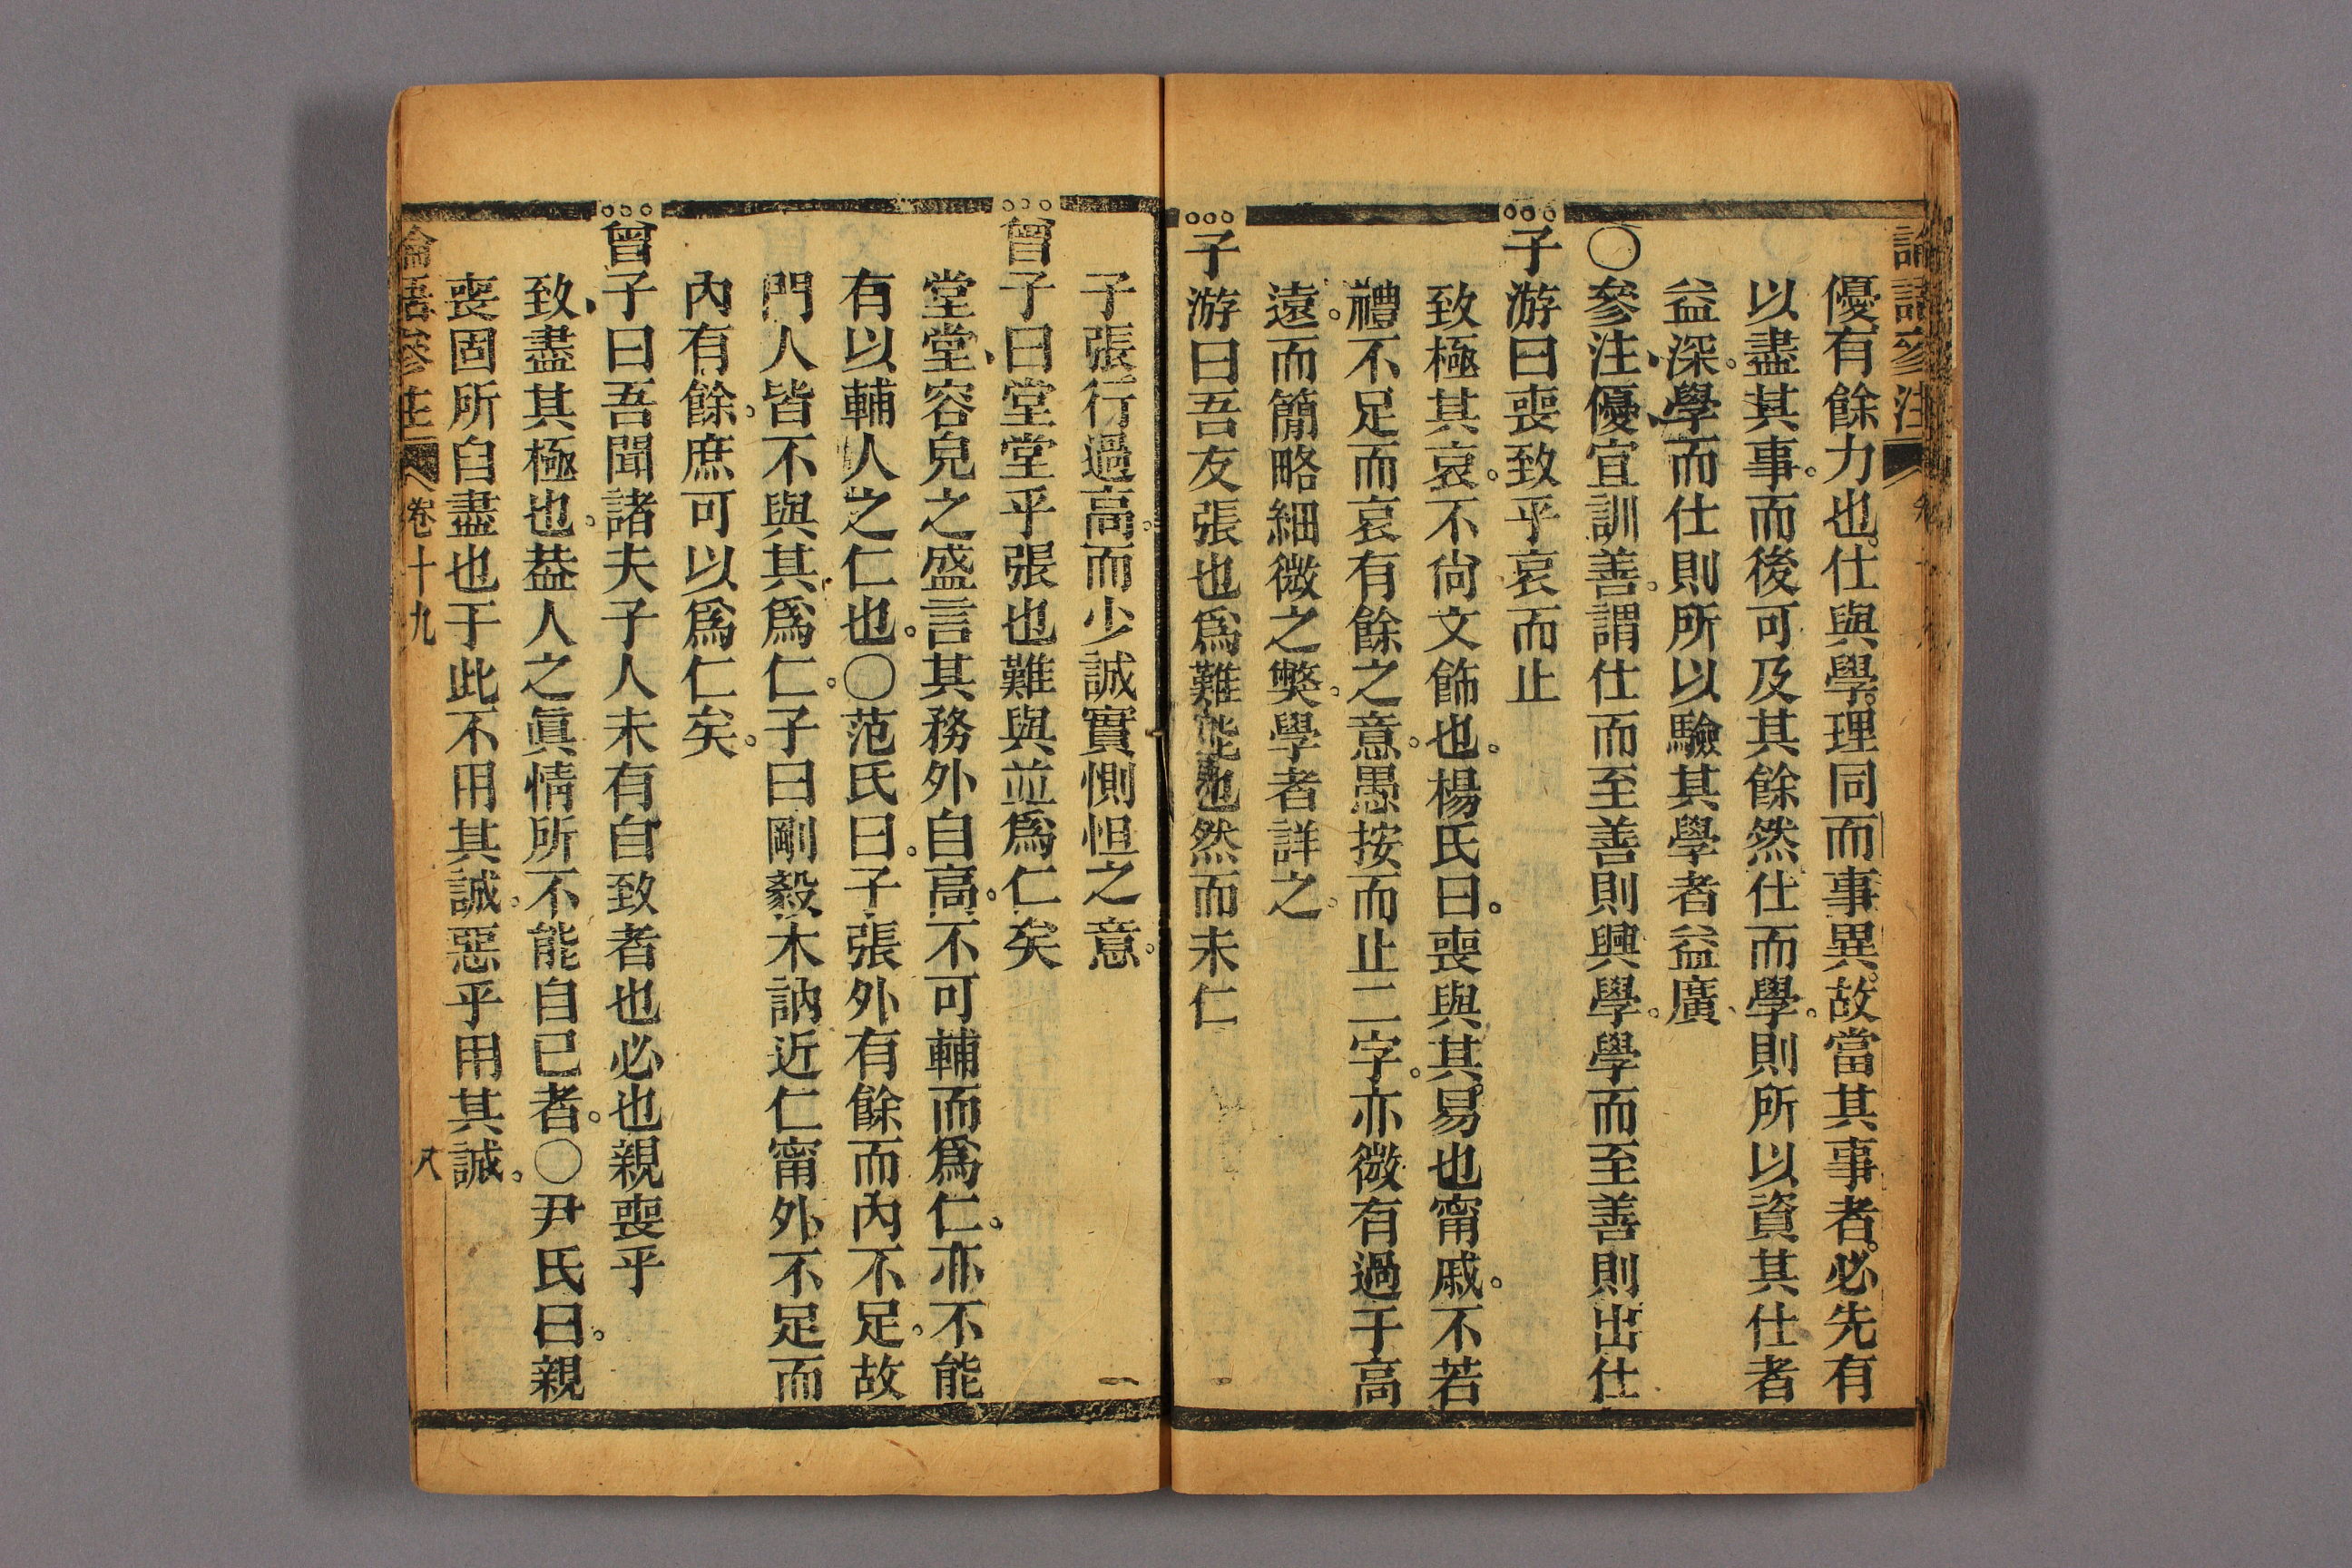 論語參注
優有餘力也。仕與學。理同而事異。故當其事者。必先有
以盡其事。而後可及其餘。然仕而學。則所以資其仕者
益深。學而仕則所以驗其學者益廣
〇參注、優、宜訓善。謂仕而至善則興學。學而至善則出仕
子游曰喪致乎哀而止
致極其哀。不尙文飾也。楊氏曰。喪與其易也甯戚。不若
禮不足而哀有餘之意。愚按而止二字。亦微有過于高
遠。而簡略細微之獘。學者詳之。
子游曰吾友張也爲難能也然而未仁
子張行過高。而少誠實惻怛之意。
曾子曰堂堂乎張也難與並爲仁矣
堂堂、容皃之盛言其務外自高。不可輔而爲仁。亦不能
有以輔人之仁也。〇范氏曰。子張外有餘而內不足。故
門人皆不與其爲仁。子曰剛毅木訥近仁甯外不足而
內有餘。庶可以爲仁矣。
曾子曰吾聞諸夫子人未有自致者也必也親喪乎
致、盡其極也。葢人之眞情所不能自已者。〇尹氏曰。親
喪固所自盡也于此不用其誠。惡乎用其誠。
論語參注 卷十九